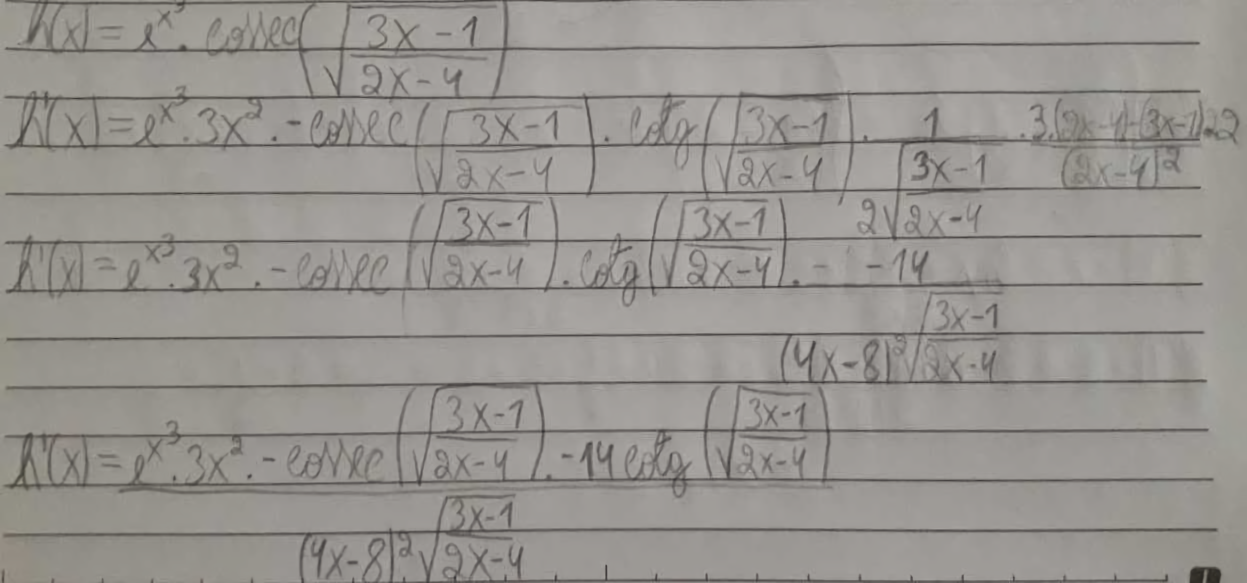 h(x) = e^x³ · cossec(√((3x-1)/(2x-4)))
h'(x) = e^x³ · 3x² · -cossec(√((3x-1)/(2x-4))) · cotg(√((3x-1)/(2x-4))) · 1/(2√((3x-1)/(2x-4))) · (3·(2x-4)-(3x-1)·2)/(2x-4)²
h'(x) = e^x³ · 3x² · -cossec(√((3x-1)/(2x-4))) · cotg(√((3x-1)/(2x-4))) · - -14/((4x-8)²√((3x-1)/(2x-4)))
h'(x) = (e^x³ · 3x² · -cossec(√((3x-1)/(2x-4))) · -14cotg(√((3x-1)/(2x-4))))/((4x-8)²√((3x-1)/(2x-4)))